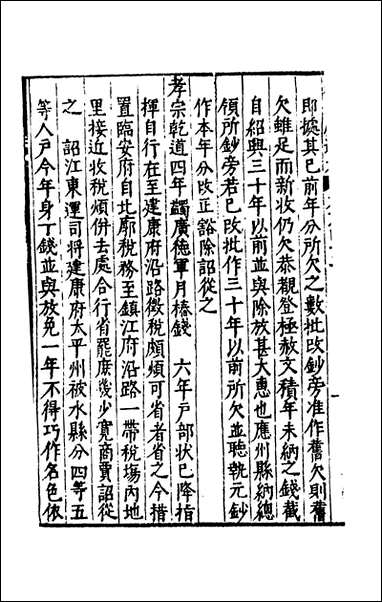 即據其已前年分所欠之數批改鈔旁准作舊欠則舊
欠雖足而新收仍欠恭覩登極赦文積年未納之錢截
自紹興三十年以前並與除放甚大惠也應州縣納總
領所鈔旁若已改批作三十年以前所欠並聽執元鈔
作本年分改正豁除詔從之
孝宗乾道四年蠲廣德軍月樁錢　六年戶部狀已降指
揮自行在至建康府沿路徴稅頗煩可省者省之今措
置臨安府自北郭稅務至鎮江府沿路一帶稅場內地
里接近收稅煩併去處合行省罷庶幾少寬商賈詔從
之　詔江東運司將建康府太平州被水縣分四等五
等人戶今年身丁錢並與放免一年不得巧作名色依